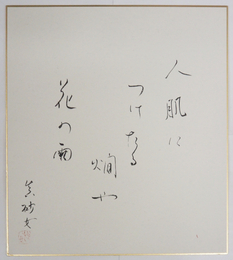 人肌に
つけたる
燗や
花の雨
真砂女